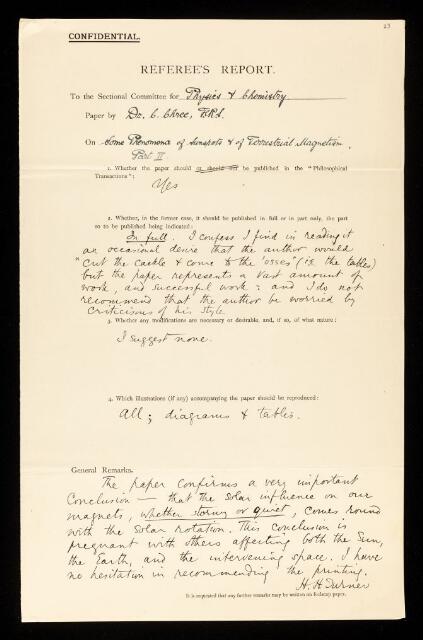 23
CONFIDENTIAL.
REFEREE'S REPORT.
To the Sectional Committee for Physics & Chemistry
Paper by Dr. C. Chree, F.R.S.
On Some Phenomena of Sunspots & of Terrestrial Magnetism.
Part II
1. Whether the paper should or should not be published in the "Philosophical
Transactions":
Yes
2. Whether, in the former case, it should be published in full or in part only, the part
so to be published being indicated:
In full. I confess I find in reading it
an occasional desire that the author would
"cut the cackle & come to the 'osses" (i.e. the tables)
but the paper represents a vast amount of
work, and successful work: and I do not
recommend that the author be worried by
criticisms of his style.
3. Whether any modifications are necessary or desirable, and, if so, of what nature:
I suggest none.
4. Which illustrations (if any) accompanying the paper should be reproduced:
All; diagrams & tables.
General Remarks.
The paper confirms a very important
conclusion — that the solar influence on our
magnets, whether stormy or quiet, comes round
with the solar rotation. This conclusion is
pregnant with others affecting both the Sun,
the Earth, and the intervening space. I have
no hesitation in recommending the printing.
H. H. Turner
It is requested that any further remarks may be written on foolscap paper.